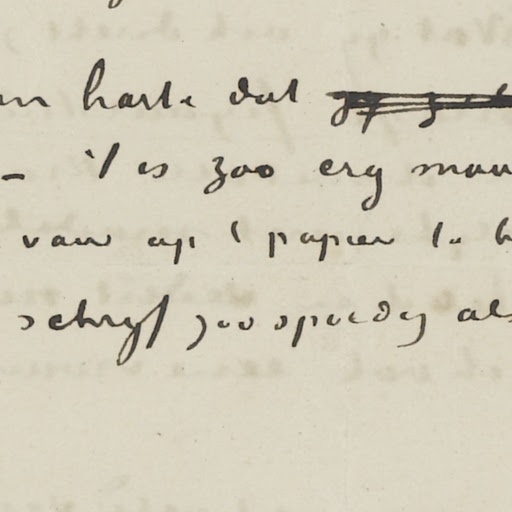 harte dat
– 't is zoo erg
van op 't papier te
schryf zoo spoedig als